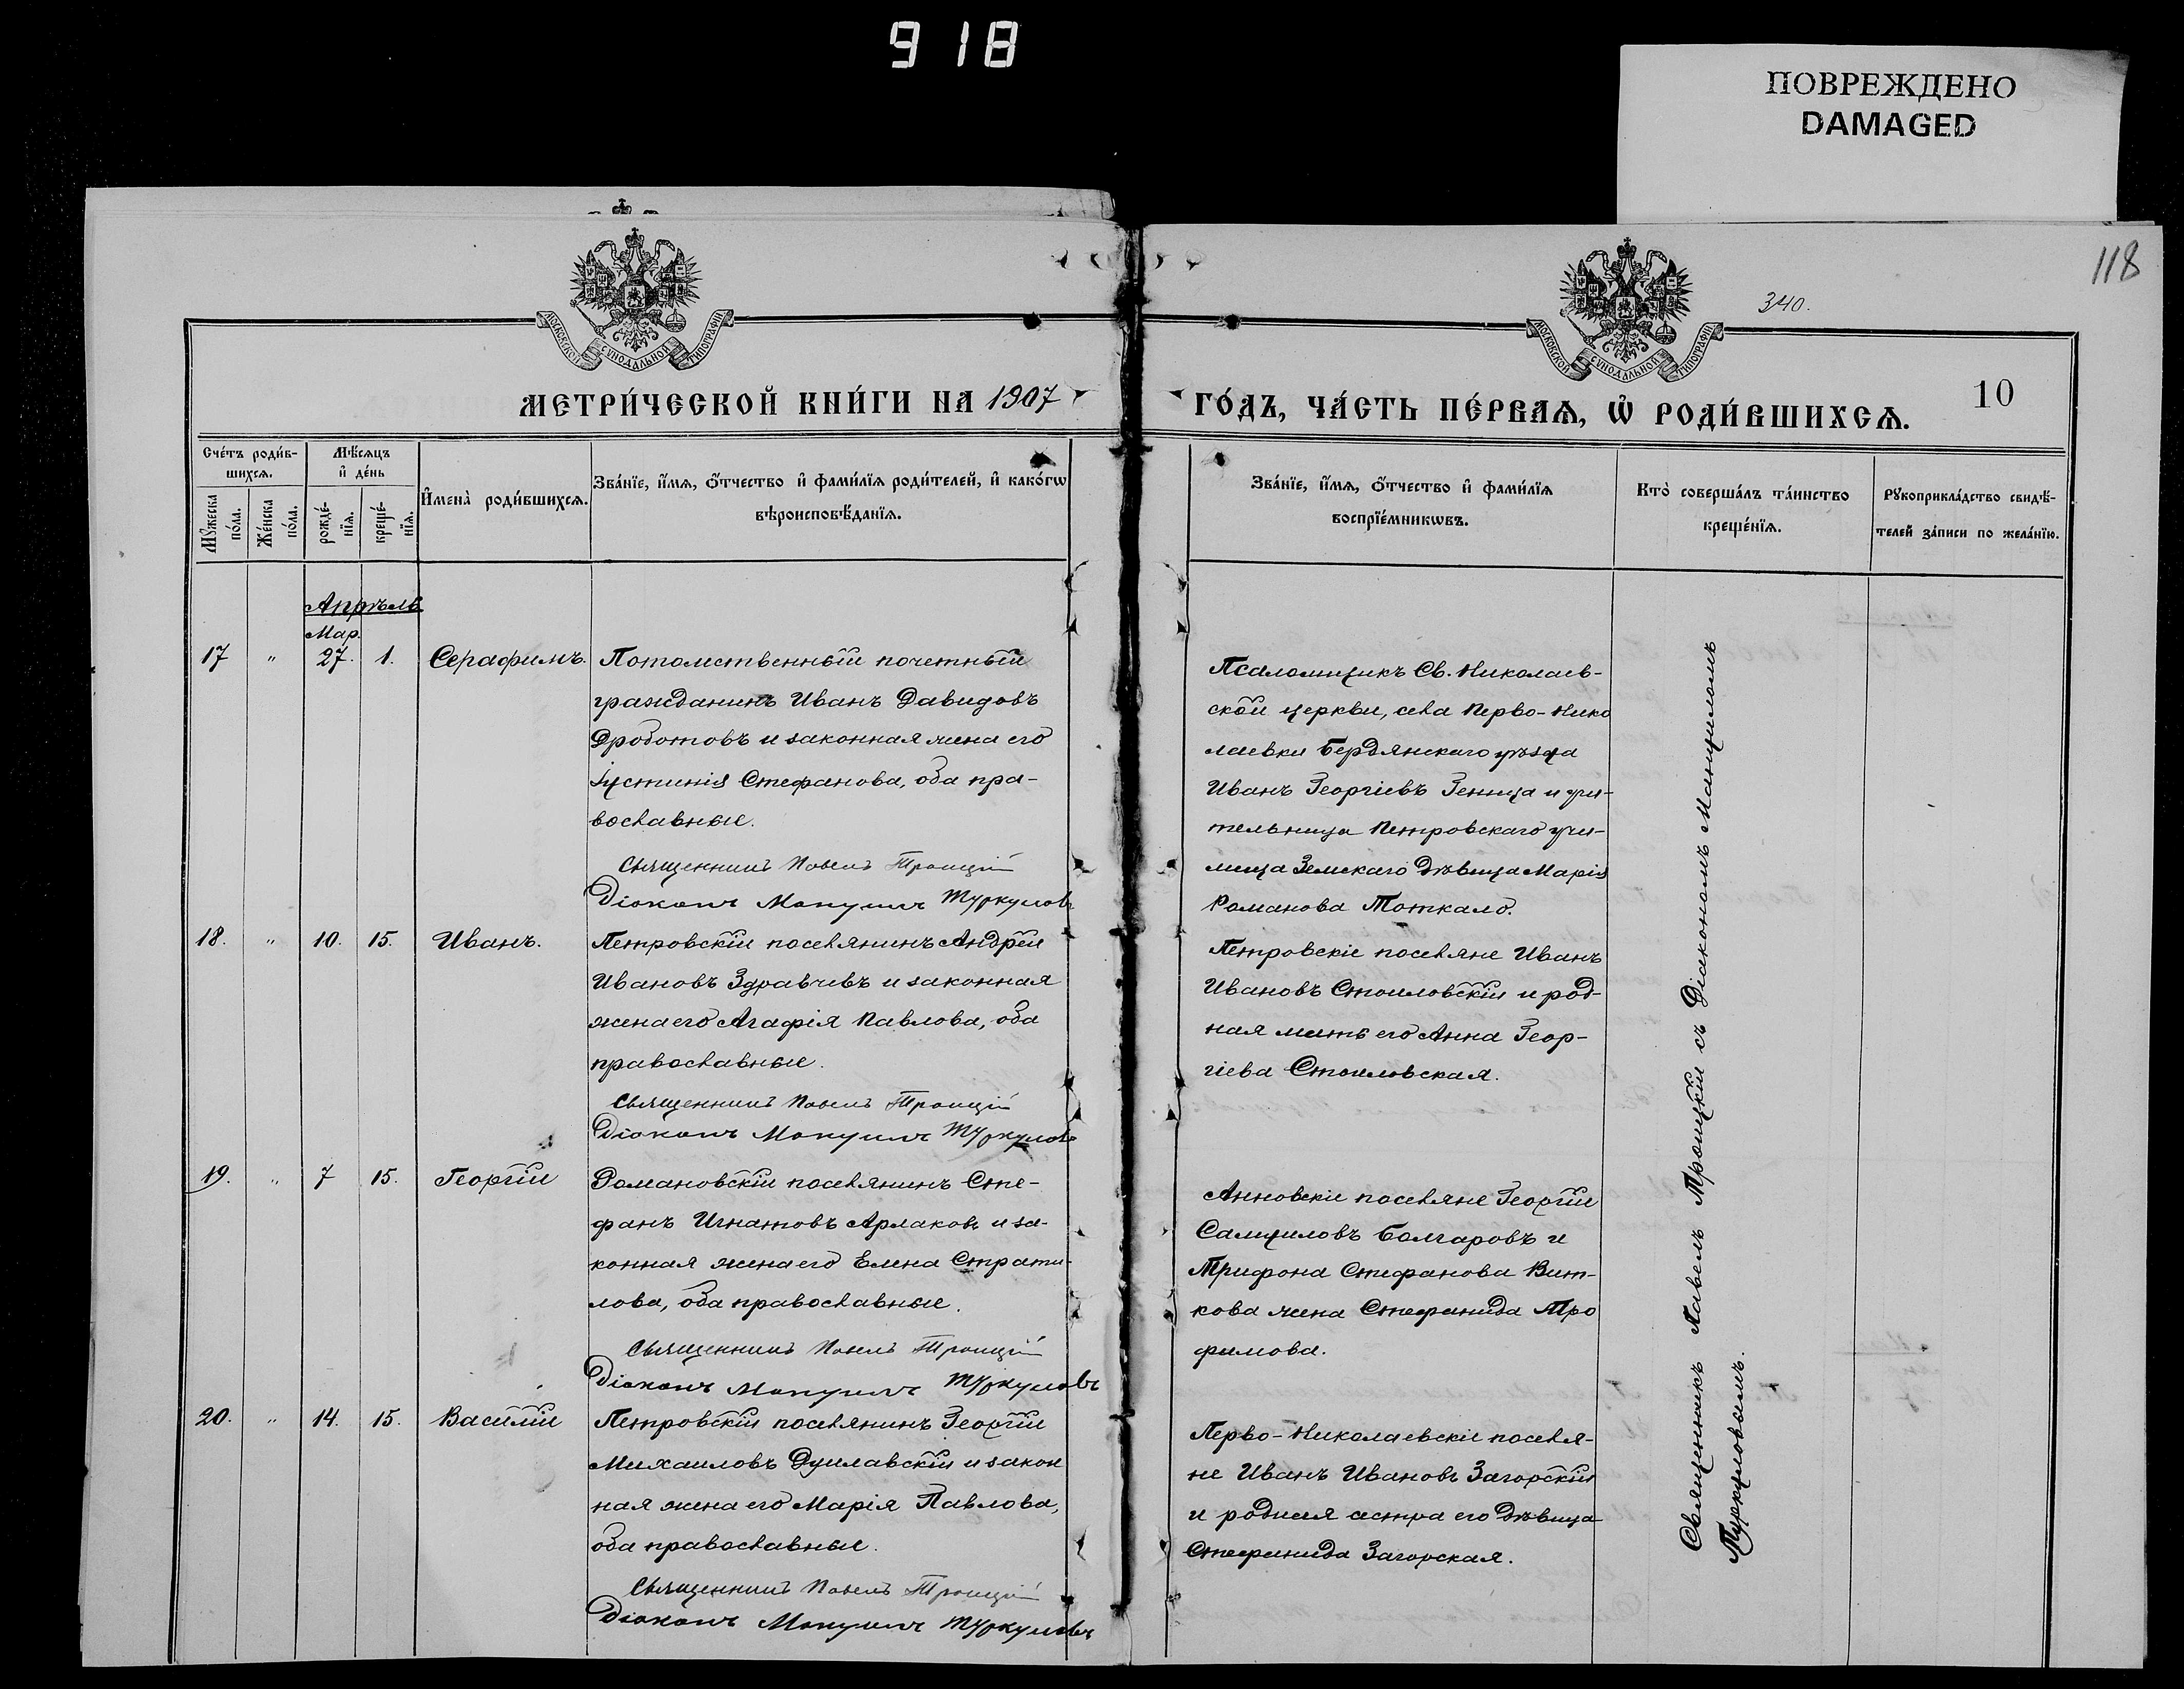 918
ПОВРЕЖДЕНО
DAMAGED
118
340.
МОСКОВСКОЙ СѴНОДАЛЬНОЙ ТИПОГРАФІИ
МОСКОВСКОЙ СѴНОДАЛЬНОЙ ТИПОГРАФІИ
МЕТРИ́ЧЕСКОЙ КНИ́ГИ НА 1907
ГО́ДЪ, ЧА́СТЬ ПЕ́РВАѦ, Ѡ҆ РОДИ́ВШИХСѦ.
10
Сче́тъ роди́в-
шихсѧ.
Мꙋ́жеска
по́ла.
Же́нска
по́ла.
Мѣ́сѧцъ
и҆ де́нь
рожде́-
нїѧ.
креще́-
нїѧ.
И҆мена̀ роди́вшихсѧ.
Зва́нїе, и҆́мѧ, ѻ҆́тчество и҆ фами́лїѧ роди́телей, и҆ како́гѡ
вѣроисповѣ́данїѧ.
Зва́нїе, и҆́мѧ, ѻ҆́тчество и҆ фами́лїѧ
воспрїе́мникѡвъ.
Кто̀ соверша́лъ та́инство
креще́нїѧ.
Рꙋкоприкла́дство свидѣ́-
телей за́писи по жела́нїю.
Апрѣль
Мар.
17 " 27. 1. Серафимъ.
Потомственный почетный
гражданинъ Иванъ Давидовъ
Дроботовъ и законная жена его
Іустинія Стефанова, оба пра-
вославные.
Священникъ Павелъ Троицкій
Діаконъ Мануилъ Туркуловъ
Псаломщикъ Св. Николаев-
ской церкви, села Перво-Нико
лаевки Бердянскаго уѣзда
Иванъ Георгіевъ Геница и учи-
тельница Петровскаго учи-
лища Земскаго Дѣвица Марія
Романова Тоткало.
18. " 10. 15. Иванъ.
Петровскій поселянинъ Андрей
Ивановъ Здравчевъ и законная
жена его Агафія Павлова, оба
православные.
Священникъ Павелъ Троицкій
Діаконъ Мануилъ Туркуловъ
Петровскіе поселяне Иванъ
Ивановъ Стоиловскій и род-
ная мать его Анна Геор-
гіева Стоиловская.
19. " 7 15. Георгій
Романовскій поселянинъ Сте-
фанъ Игнатовъ Армаковъ и за-
конная жена его Елена Страти-
лова, оба православные.
Священникъ Павелъ Троицкій
Діаконъ Мануилъ Туркуловъ
Анновскіе поселяне Георгій
Самуиловъ Болгаровъ и
Трифона Стефанова Вит-
кова жена Стефанида Тро
фимова.
20. " 14. 15. Василій
Петровскій поселянинъ Георгій
Михаиловъ Душлавскій и закон
ная жена его Марія Павлова,
оба православные.
Священникъ Павелъ Троицкій
Діаконъ Мануилъ Туркуловъ
Перво-Николаевскіе поселя-
не Иванъ Ивановъ Загорскій
и родная сестра его дѣвица
Стефанида Загорская.
Священникъ Павелъ Троицкій съ Діакономъ Мануиломъ
Туркуловымъ.